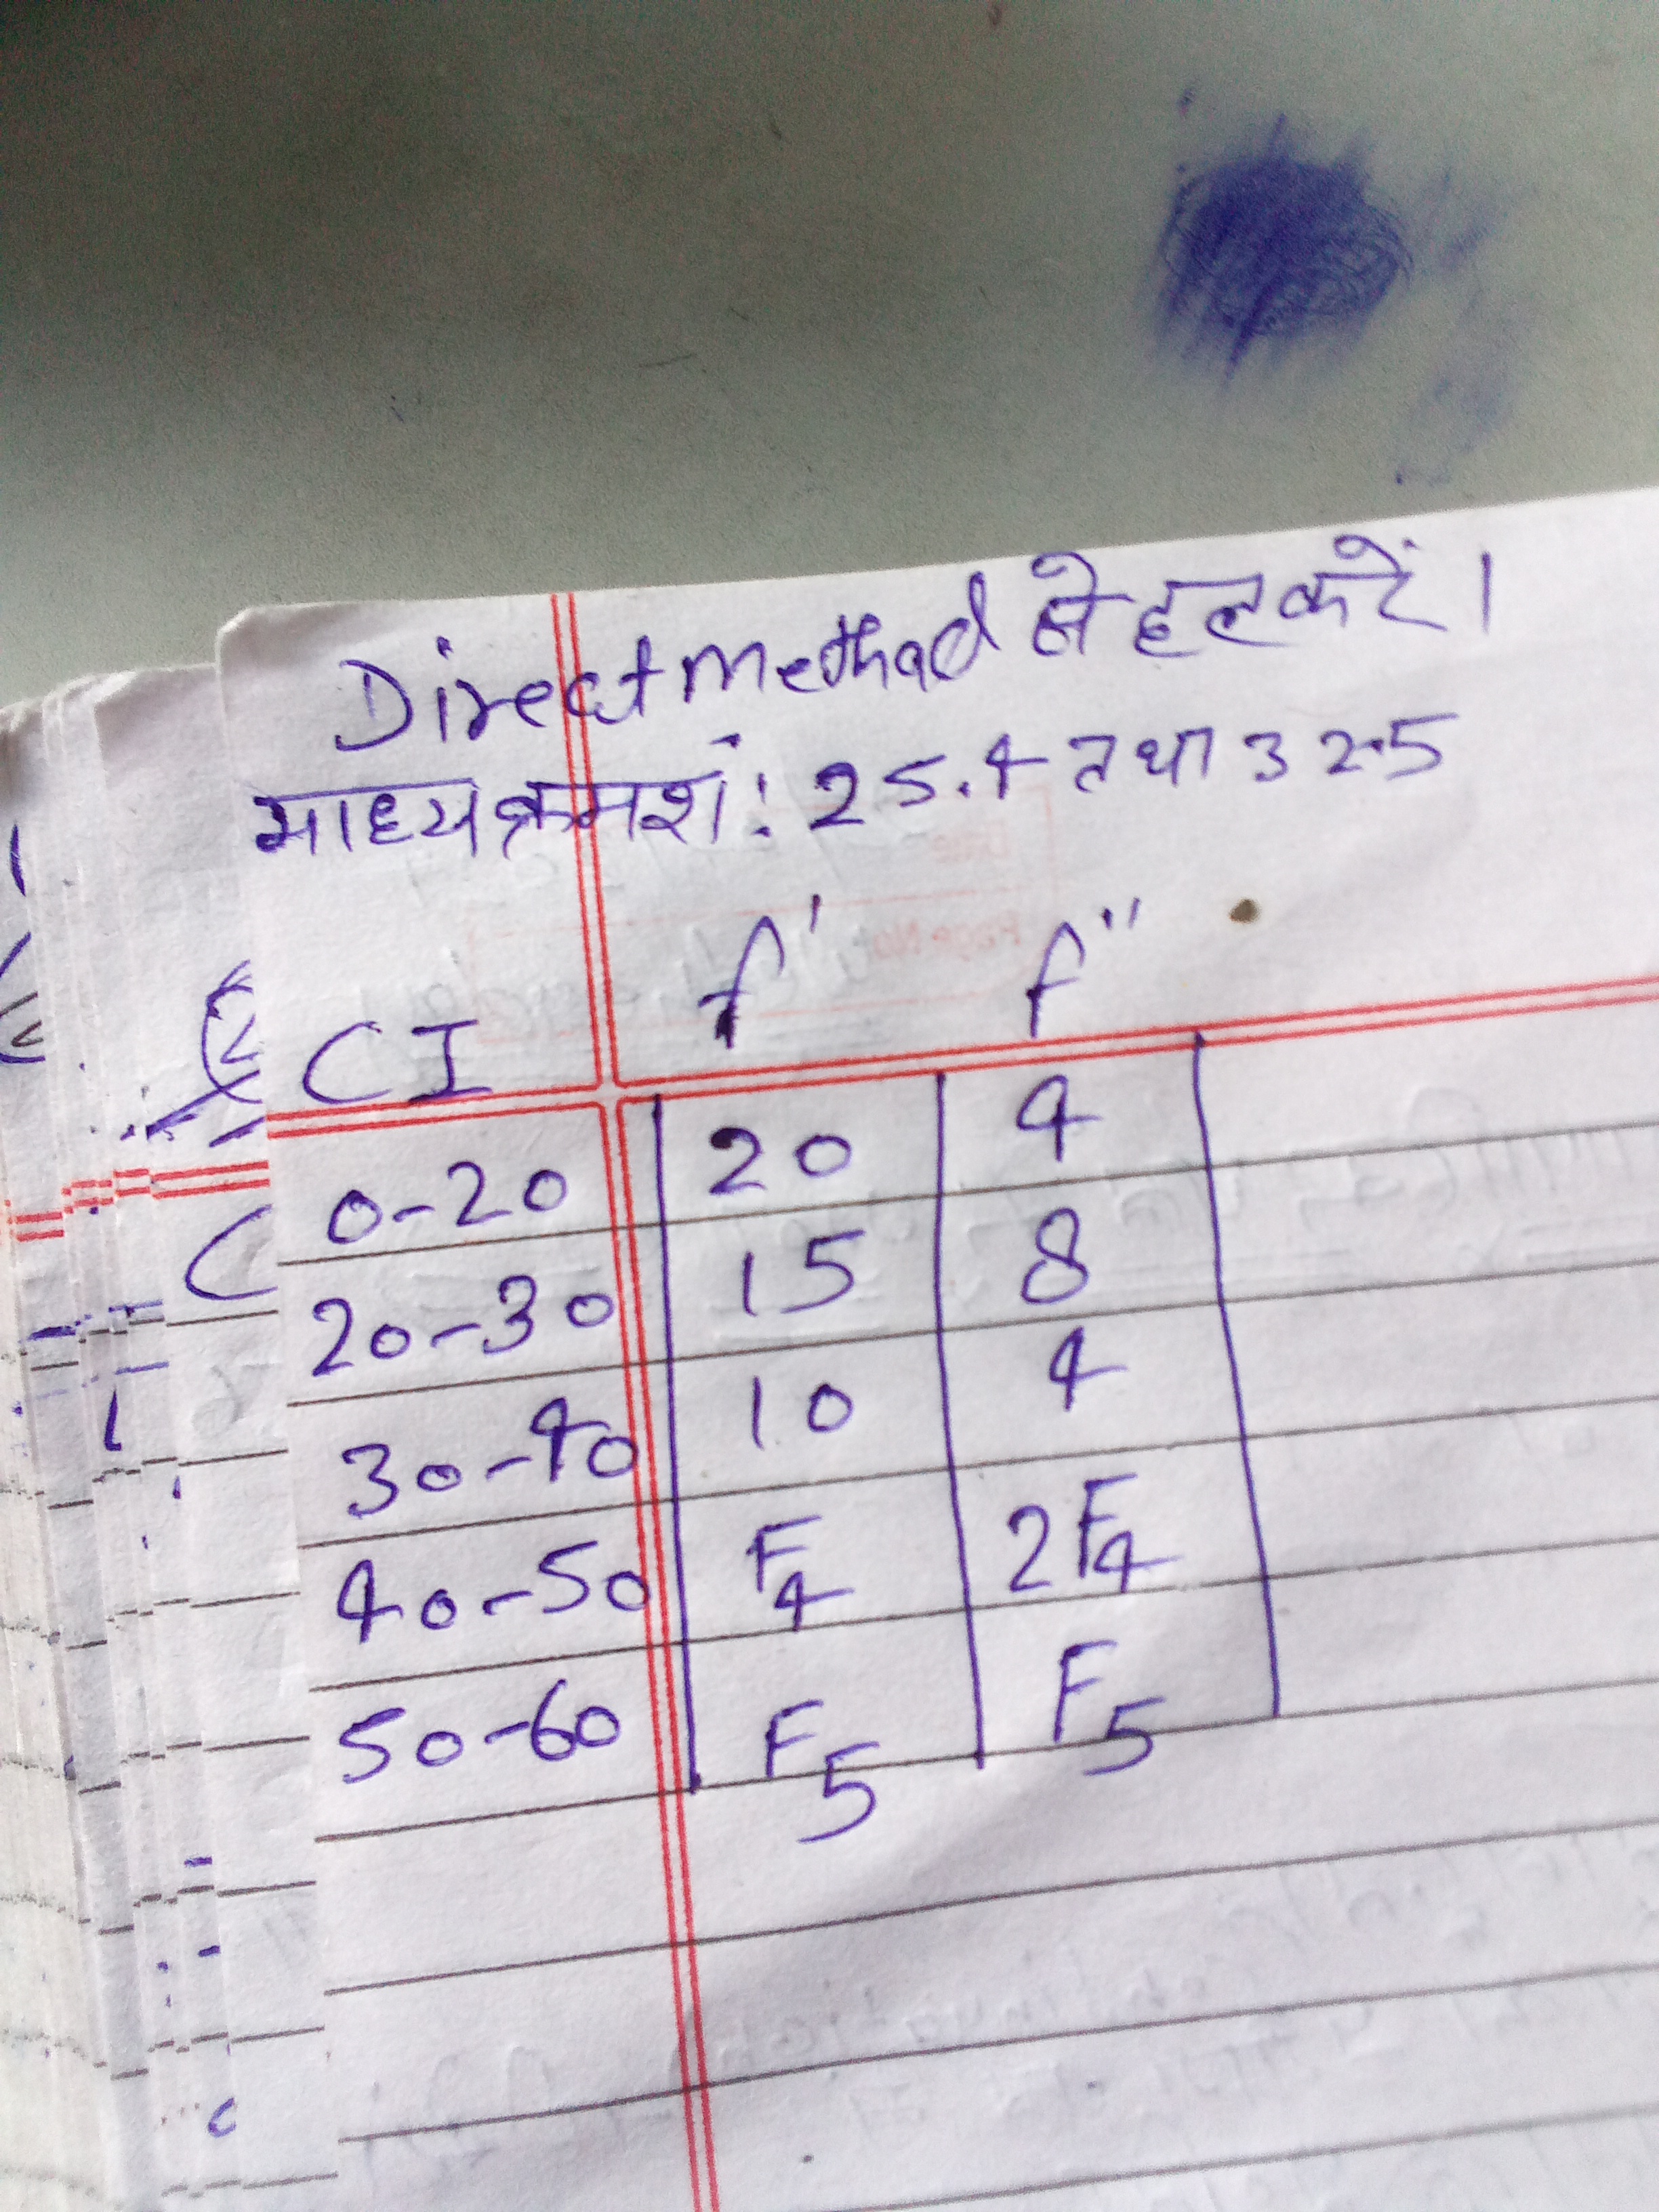 Direct Methad से हल करें।
माध्य क्रमशं: 25.4 तथा 32.5
CI f' f''
0-20 20 4
20-30 15 8
30-40 10 4
40-50 F4 2F4
50-60 F5 F5